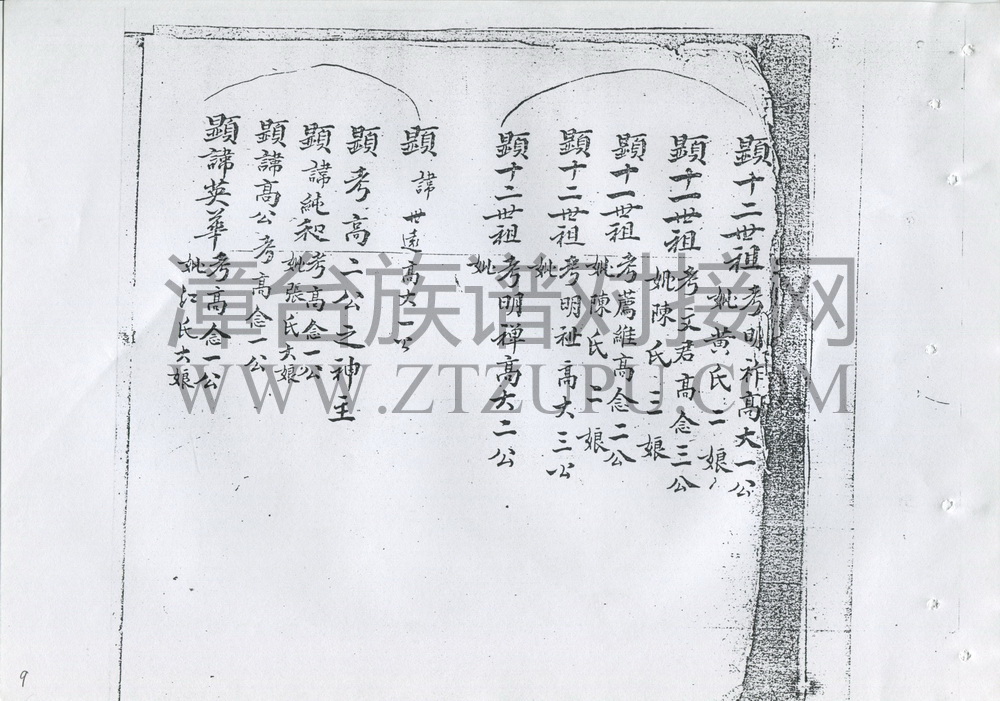 顯十二世祖考明祚高大一公
妣黃氏二娘
顯十一世祖考文君高念三公
妣陳氏三娘
顯十一世祖考薦維高念二公
妣陳氏二娘
顯十二世祖考明祉高大三公
妣
顯十二世祖考明禅高大二公
妣
顯諱世遠高大一公
顯考高二公之神主
顯諱純和考高念一公
妣張氏大娘
顯諱高公考高念一公
顯諱英華考高念一公
妣江氏大娘
漳台族谱对接网
WWW.ZTZUPU.COM
9